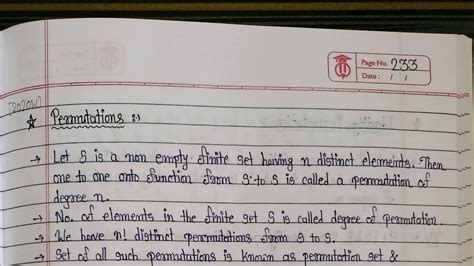 Page No. 233
Date : / /
[2020W]
☆ Permutations :-)
→ Let S is a non empty finite set having n distinct elements. Then
one to one onto function from S to S is called a permutation of
degree n.
→ No. of elements in the finite set S is called degree of permutation.
→ We have n! distinct permutations from S to S.
→ Set of all such permutations is known as permutation set &